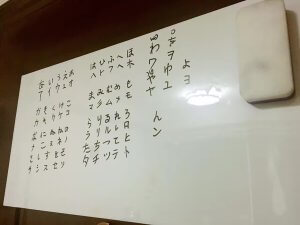 あア かカ なナ さサ
いイ きキ にニ しシ
うウ くク ぬヌ すス
えエ けケ ねネ せセ
おオ こコ のノ そソ
はハ まマ らラ たタ
ひヒ みミ りリ ちチ
ふフ むム るル つツ
へヘ めメ れレ てテ
ほホ もモ ろロ とト
わワ やヤ んン
ゆユ
をヲ よヨ